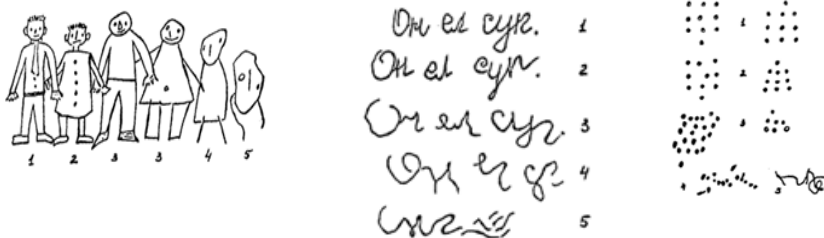 1 2 3 3 4 5
Он ел суп. 1
Он ел суп. 2
Он ел суп. 3
4
5
1
2
3
4 5